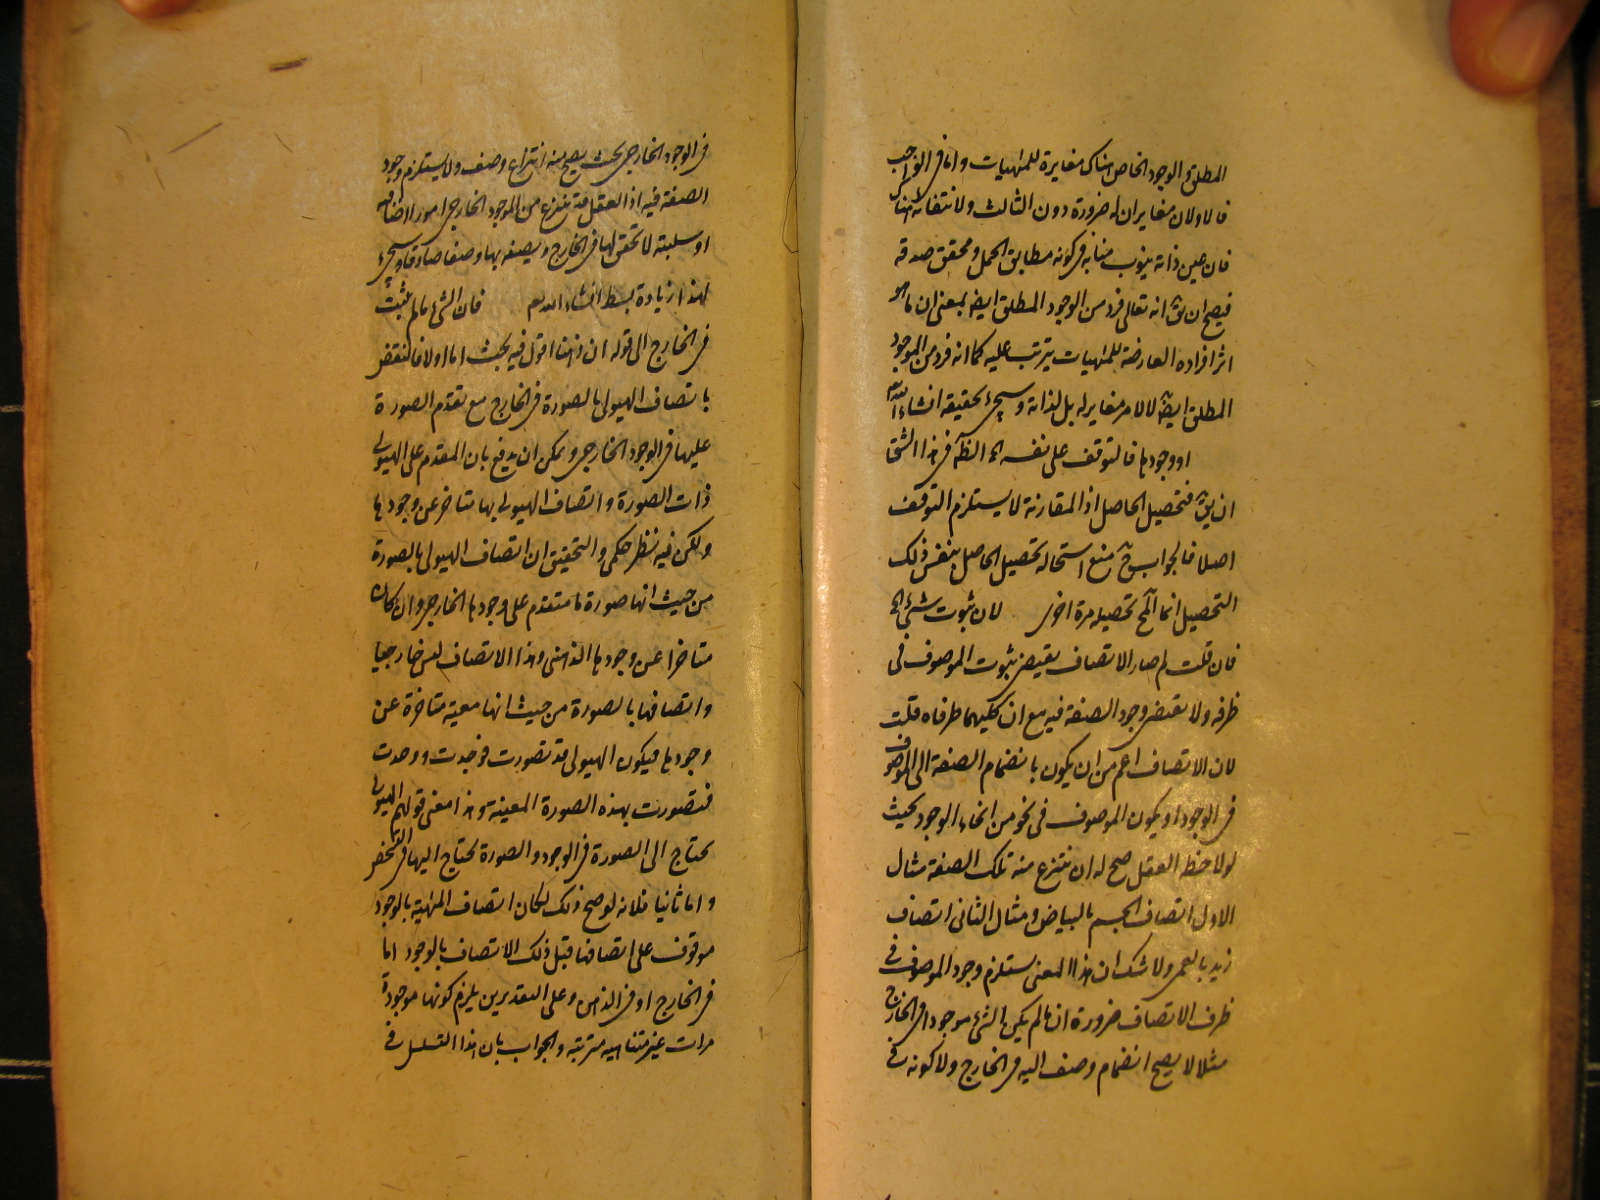 المطلق والوجود الخاص هناك مغايرة للمهيات واما فى الواجب
فالاولان مغايران له ضرورة دون الثالث ولانتفائه هناك
فان عين ذاته ينوب منابه فى كونه مطابق الحمل ومحقق صدقه
فيصح ان يق انه تعالى فرد من الوجود المطلق ايضا بمعنى ان ما هو
اثر افراده العارضة للمهيات يترتب عليه كما انه فرد من الموجود
المطلق ايضا لا لامر مغاير له بل لذاته وسيجئ تحقيقه انشاء الله
او وجودها فالتوقف على نفسه الخ الظ فى هذا الشق
ان يق فتحصيل الحاصل اذ المقارنة لا يستلزم التوقف
اصلا فالجواب ح منع استحالة تحصيل الحاصل بنفس ذلك
التحصيل انما المح تحصيله مرة اخرى لان ثبوت شئ الخ
فان قلت لم صار الاتصاف يقتضى ثبوت الموصوف فى
ظرفه ولا يقتضى وجود الصفة فيه مع ان كليهما طرفاه قلت
لان الاتصاف اعم من ان يكون بانضمام الصفة الى الموصوف
فى الوجود او يكون الموصوف فى نحو من انحاء الوجود بحيث
لو لاحظه العقل صح له ان ينتزع منه تلك الصفة مثال
الاول اتصاف الجسم بالبياض ومثال الثانى اتصاف
زيد بالعمى ولا شك ان هذا المعنى يستلزم وجود الموصوف فى
ظرف الاتصاف ضرورة ان ما لم يكن الشئ موجودا فى الخارج
مثلا لا يصح انضمام وصف اليه فى الخارج ولا كونه فى
فى الوجود الخارجى بحيث يصح منه انتزاع وصف ولا يستلزم وجود
الصفة فيه اذ العقل قد ينتزع من الموجود الخارجى امورا اضافية
او سلبية لا تحقق لها فى الخارج ويصفه بها وصفا صادقا وسيجئ
لهذا زيادة بسط انشاء الله تعم فان الشئ ما لم يثبت
فى الخارج الى قوله ان ذهنا اقول فيه بحث اما اولا فالنقض
باتصاف الهيولى بالصورة فى الخارج مع تقدم الصورة
عليها فى الوجود الخارجى ويمكن ان يدفع بان المقدم على الهيولى
ذات الصورة واتصاف الهيولى بها متاخر عن وجودها
ولكن فيه نظر حكمى والتحقيق ان اتصاف الهيولى بالصورة
من حيث انها صورة ما متقدم على وجودها الخارجى وان كان
متاخرا عن وجودها الذهنى وهذا الاتصاف ليس خارجيا
واتصافها بالصورة من حيث انها معينة متاخرة عن
وجودها فيكون الهيولى قد تصورت فوجدت ووجدت
فتصورت بهذه الصورة المعينة وهذا معنى قولهم الهيولى
يحتاج الى الصورة فى الوجود والصورة يحتاج اليها فى التشخص
واما ثانيا فلانه لو صح ذلك لكان اتصاف المهية بالوجود
موقوف على اتصافها قبل ذلك الاتصاف بالوجود اما
فى الخارج او فى الذهن وعلى التقديرين يلزم كونها موجودة
مرات غير متناهية مترتبة والجواب بان هذا التسلسل فى